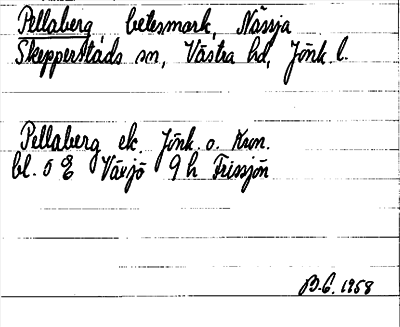 Pellaberg betesmark, Nässja
Skepperstads sn, Västra hd, Jönk. l.
Pellaberg ek. Jönk. o. Kron.
bl. 5 E Växjö 9 h Frissjön
B.G. 1958